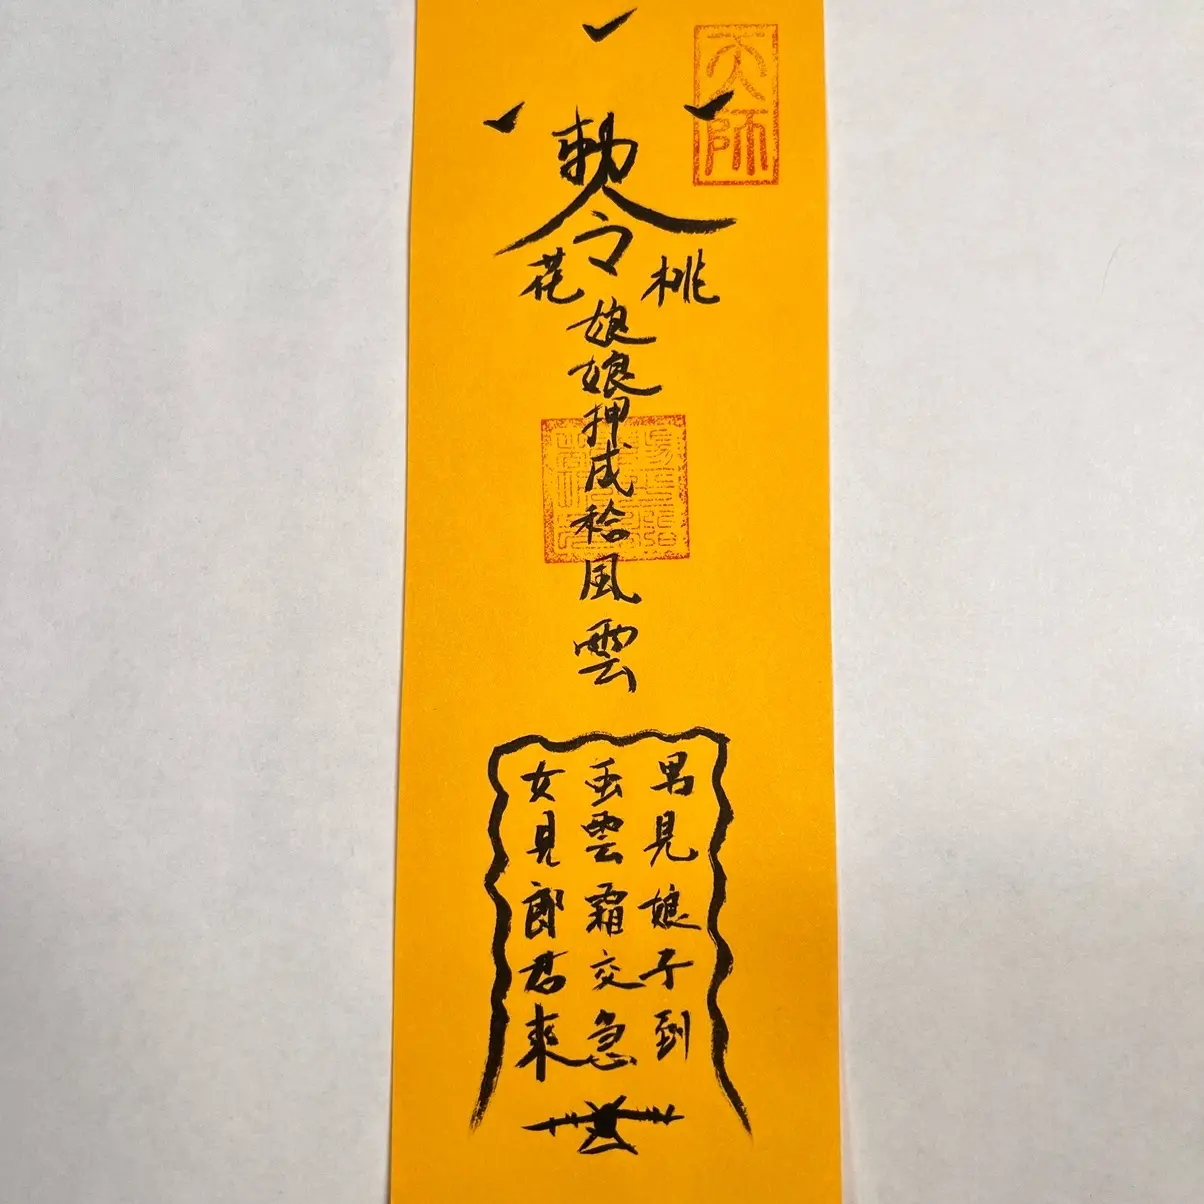 天師
勅令
桃花
娘娘押成
風雲
男見娘子到
雲霜交急
女見郎君來